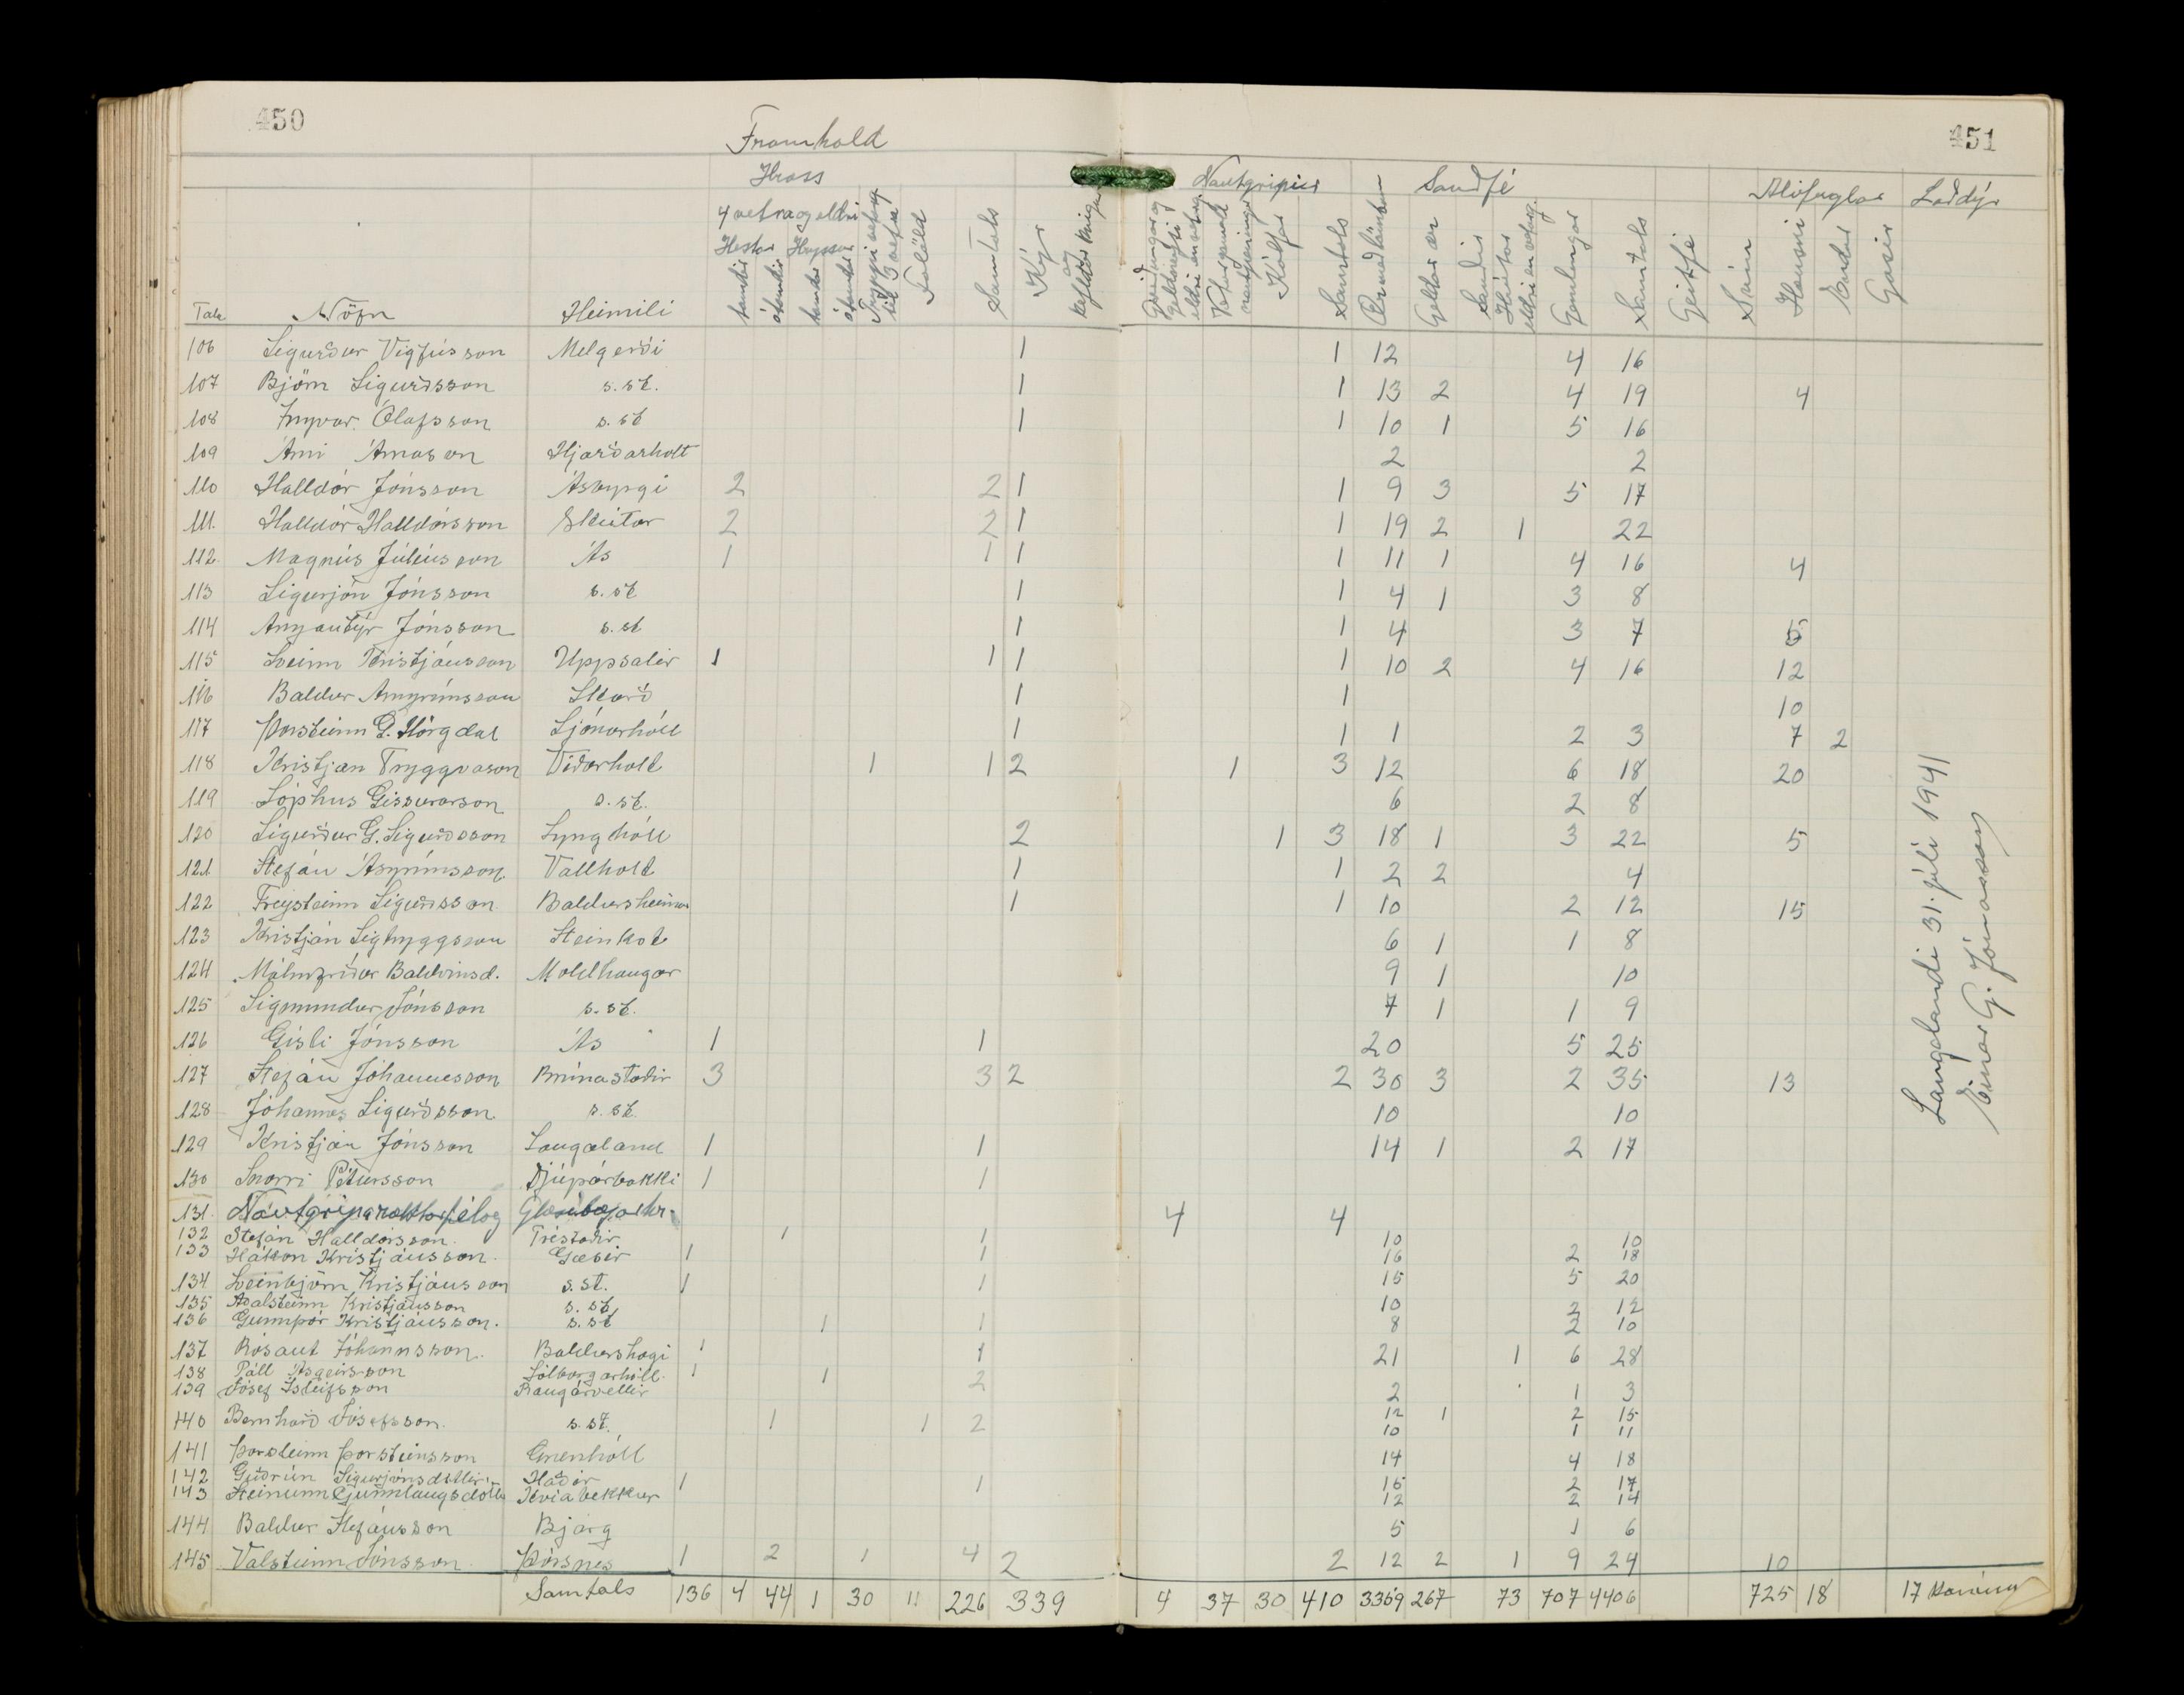 450
451
Framhald
Hross Nautgripir Sauðfé Alifuglar Loðdýr
4 vetra og eldri
Hestar Hryssur
Tala Nöfn Heimili tamdir ótamdir tamdar ótamdar Folöld Samtals Kýr Kálfar Samtals Geldar ær Sauðir Gemlingar Samtals Geitfé Svín Hænsni Endur Gæsir
106 Sigurður Vigfússon Melgerði 1 1 12 4 16
107 Björn Sigurðsson s.st. 1 1 13 2 4 19 4
108 Ingvar Ólafsson s.st 1 1 10 1 5 16
109 Árni Árnason Hjarðarholt 2 2
110 Halldór Jónsson Ásbyrgi 2 2 1 1 9 3 5 17
111. Halldór Halldórsson Skútar 2 2 1 1 19 2 1 22
112. Magnús Júlíusson Ás 1 1 1 1 11 1 4 16 4
113 Sigurjón Jónsson s.st 1 1 4 1 3 8
114 Angantýr Jónsson s.st 1 1 4 3 7 5
115 Sveinn Kristjánsson Uppsalir 1 1 1 1 10 2 4 16 12
116 Baldur Arngrímsson Skarð 1 1 10
117 Þorsteinn G. Hörgdal Sjónarhóll 1 1 1 2 3 7 2
118 Kristján Tryggvason Viðarholt 1 1 2 1 3 12 6 18 20
119 Lóphus Gissurarson s.st. 6 2 8
120 Sigurður G. Sigurðsson Lynghóll 2 1 3 18 1 3 22 5
121. Stefán Ásgrímsson Vallholt 1 1 2 2 4
122 Freysteinn Sigurðsson Baldursheimur 1 1 10 2 12 15
123 Kristján Sigtryggsson Steinkot 6 1 1 8
124 Málmfríður Baldvinsd. Moldhaugar 9 1 10
125 Sigmundur Jónsson s.st. 7 1 1 9
126 Gísli Jónsson Ás 1 1 20 5 25
127 Stefán Jóhannesson Brúnastaðir 3 3 2 2 30 3 2 35 13
128 Jóhannes Sigurðsson s.st. 10 10
129 Kristján Jónsson Laugaland 1 1 14 1 2 17
130 Snorri Pétursson Djúpárbakki 1 1
131. Nautgriparæktarfélag Glæsibæjarhr. 4 4
132 Stefán Halldórsson. Tréstaðir 1 1 10 10
133 Hákon Kristjánsson. Gæsir 1 1 16 2 18
134. Sveinbjörn Kristjánsson s.st. 1 1 15 5 20
135 Aðalsteinn Kristjánsson s.st. 10 2 12
136 Gunnþór Kristjánsson. s.st 1 1 8 2 10
137 Rósant Jóhannsson. Baldurshagi 1 1 21 1 6 28
138 Páll Ásgeirsson Sólborgarhóll. 1 1 2
139 Jósef Ísleifsson Rangárvellir 2 1 3
140 Bernharð Jósefsson. s.st. 1 1 2 12 1 2 15
10 1 11
141 Þorsteinn Þorsteinsson Grænhóll 14 4 18
142 Guðrún Sigurjónsdóttir. Haðir 1 1 15 2 17
143 Steinunn Gunnlaugsdóttir Kvíabekkur 12 2 14
144 Baldur Stefánsson Bjarg 5 1 6
145 Valsteinn Jónsson. Þórsnes 1 2 1 4 2 2 12 2 1 9 24 10
Samtals 136 4 44 1 30 11 226 339 4 37 30 410 3359 267 73 707 4406 725 18 17 Kanínur
Laugalandi 31. júlí 1941
Einar G. Jónasson